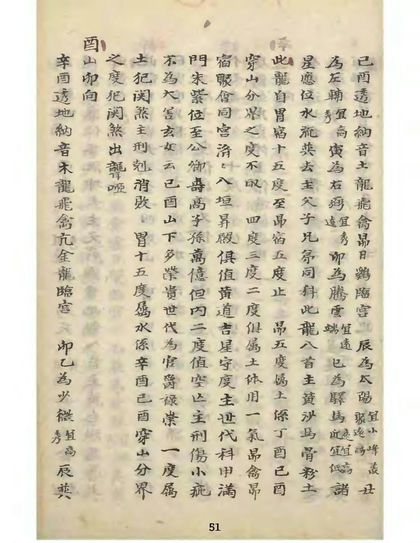 己酉透地納音土龍飛禽昴日鷄臨宮 辰為太陽 宜小峰叢聚 丑
為左輔 宜高秀 寅為右弼 宜秀遠 卯為騰雲 宜遠 巳為驛馬 宜高 諸
星應位水流與去主父子兄弟同科此龍八首主黃沙馬骨粉土
此龍自胃宿十五度至昴宿五度止 昴五度屬土係丁酉己酉
穿山分界之度不取 四度三度二度俱屬土体用一氣昴禽昴
宿聚會同宮 八垣昇殿俱值黃道吉星守度主世代科甲滿
門朱紫位至公卿壽高子孫萬億但內二度值空亡主刑傷小疵
不為大害玄女云己酉山下多榮貴世代為官爵祿崇 一度屬
土犯関煞主刑剋消敗 胃十五度屬水係辛酉己酉穿山分界
之度犯関煞出聾啞
酉山卯向
辛酉透地納音木龍飛禽亢金龍臨宮 卯乙為少微 宜高秀 辰巽
51